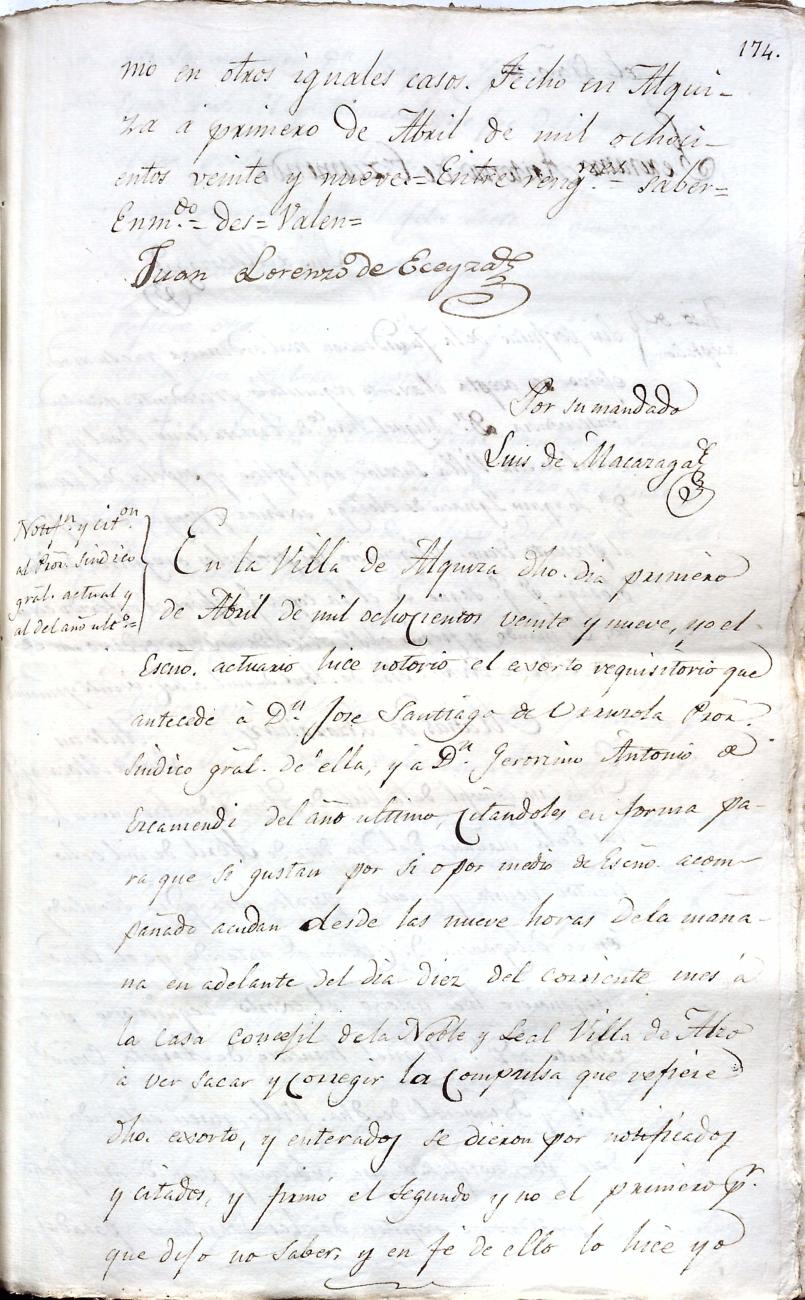 174.
mo en otros iguales casos. Fecho en Alqui-
za á primero de Abril de mil ochoci-
entos veinte y nueve=Entrereng.s= saber=
Enm.do= des= Valen=
Juan Lorenzo de Eceyza
Por su mandado
Luis de Macazaga
Notif.n y cit.on
al Pror. Sindico
gral. actual y
al del año ult.o=
En la Villa de Alquiza dho. dia primero
de Abril de mil ochocientos veinte y nueve, yo el
Escño. actuario hice notorio el exorto requisitório que
antecede á D.n Jose Santiago de Urruzola Pror.
Sindico gral. de ella, y a D.n Geronimo Antonio de
Ercamendi del año ultimo, citandoles en forma pa-
ra que si gustan por si o por medio de Escño. acom-
pañado acudan desde las nueve horas de la maña-
na en adelante del dia diez del corriente mes á
la Casa Concejil de la Noble y Leal Villa de Alzo
á ver sacar y corregir la Compulsa que refiere
dho. exorto, y enterados se dieron por notificados
y citados, y firmó el segundo y no el primero p.r
que dijo no saber, y en fé de ello lo hice yo